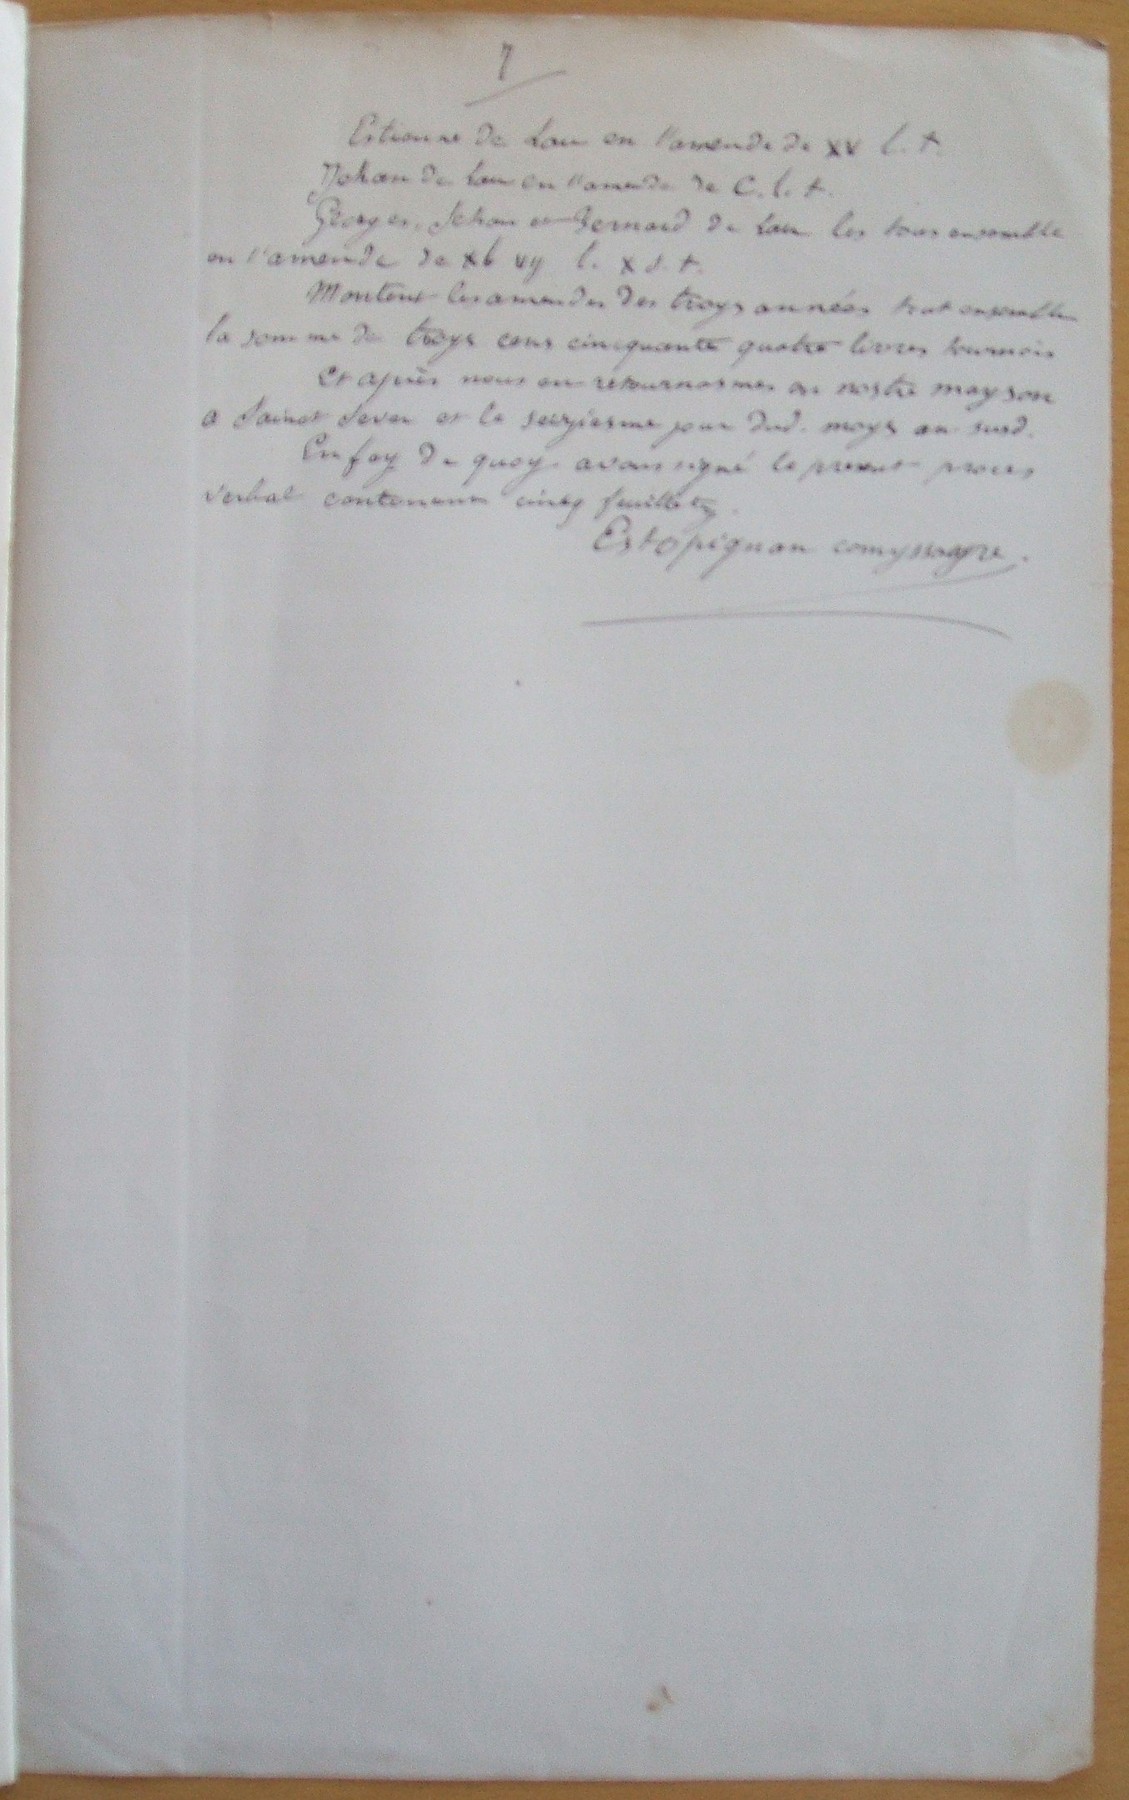 7
Estienne de Lau en l'amende de XV l. t.
Johan de Lau en l'amende de C. l. t.
Georges, Jehan et Bernard de Lau les tous ensemble
en l'amende de l. X s. t.
Montent les amendes des troys années tout ensemble
la somme de troys cens cincquante quatre livres tournois
Et après nous en retournasmes en nostre mayson
a Sainct Sever et le seiziesme jour dud. moys an susd.
En foy de quoy avons signé le present proces
verbal contenant cincq feuilletz.
Estopignan comyssayre.